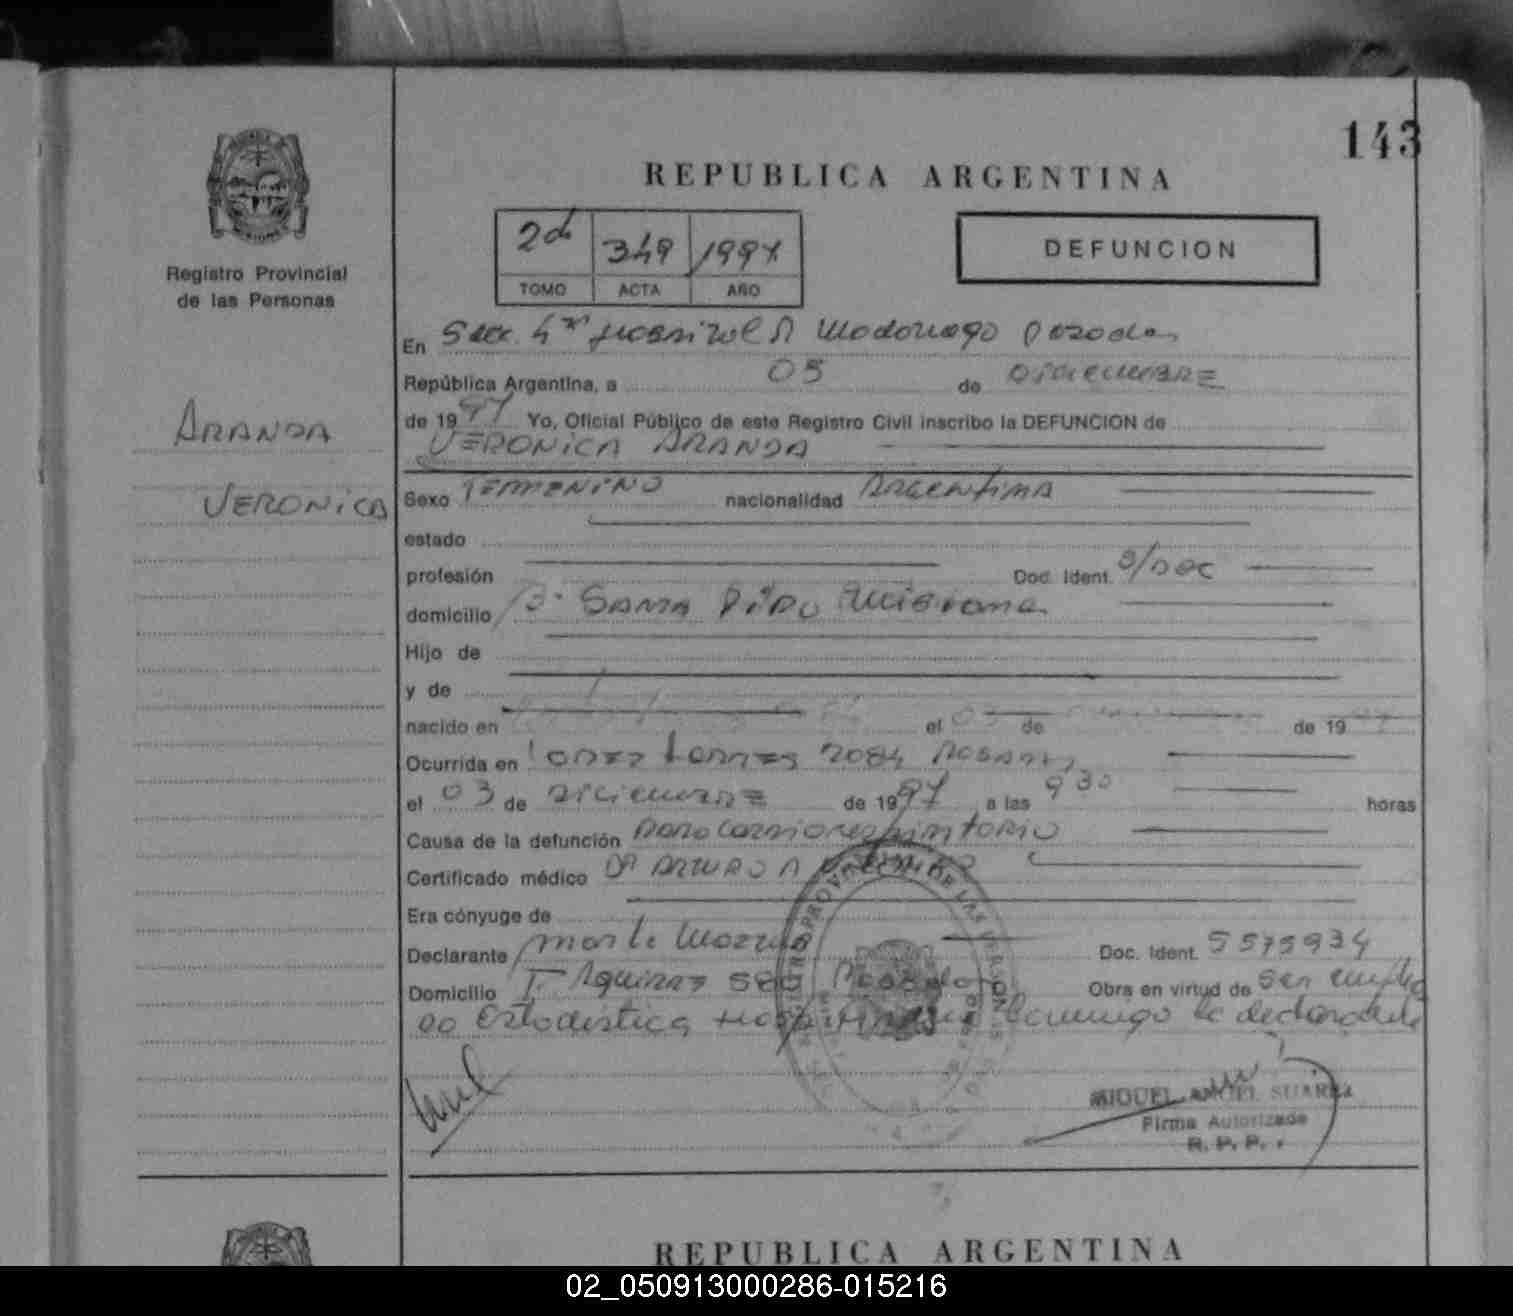 143
REPUBLICA ARGENTINA
Registro Provincial
de las Personas
2do 349 1997
TOMO ACTA AÑO
DEFUNCION
En Secc. 4ta Hospital R Madariaga Posadas
República Argentina, a 05 de Diciembre
de 1997 Yo, Oficial Público de este Registro Civil inscribo la DEFUNCION de
VERONICA ARANDA
ARANDA
VERONICA
Sexo FEMENINO nacionalidad ARGENTINA
estado
profesión Doc. Ident. S/DOC
domicilio SANTA Misiones
Hijo de
y de
nacido en el 03 de de 19
Ocurrida en Torres 2084 POSADAS
el 03 de Diciembre de 1997 a las 9 30 horas
Causa de la defunción Paro CARDIORESPIRATORIO
Certificado médico DR ARTURO A
Era cónyuge de
Declarante Doc. Ident. 5575934
Domicilio Posadas Obra en virtud de ser emplea
do Estadistica
MIGUEL ANGEL SUAREZ
Firma Autorizada
R. P. P.
REPUBLICA ARGENTINA
02_050913000286-015216